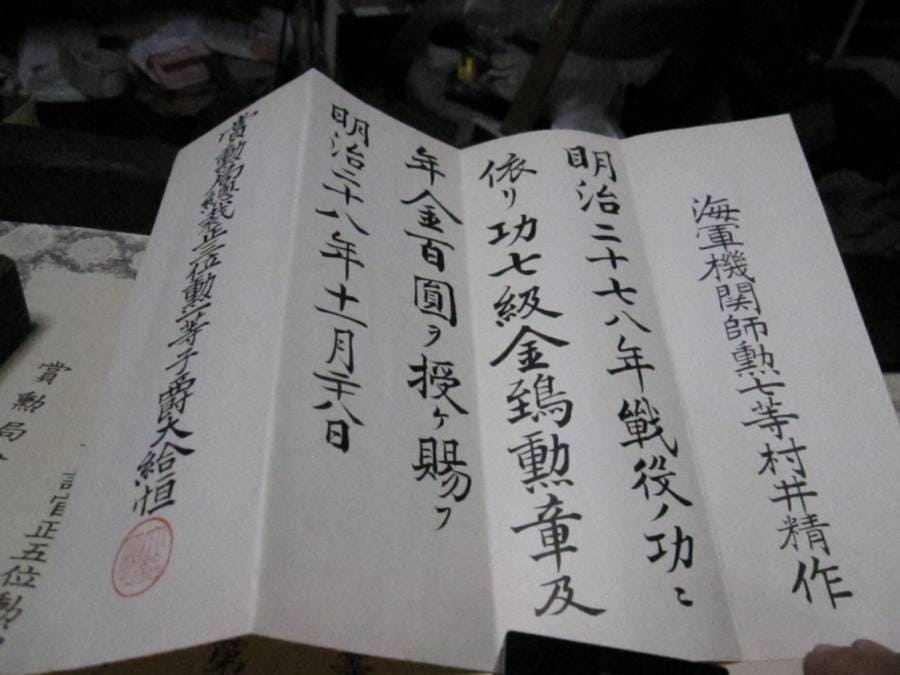 海軍機関師勲七等村井精作
明治二十七八年戦役ノ功ニ
依リ功七級金鵄勲章及
年金百圓ヲ授ケ賜フ
明治二十八年十一月二十八日
賞勲局総裁正三位勲一等子爵大給恒
賞勲局
正五位勲